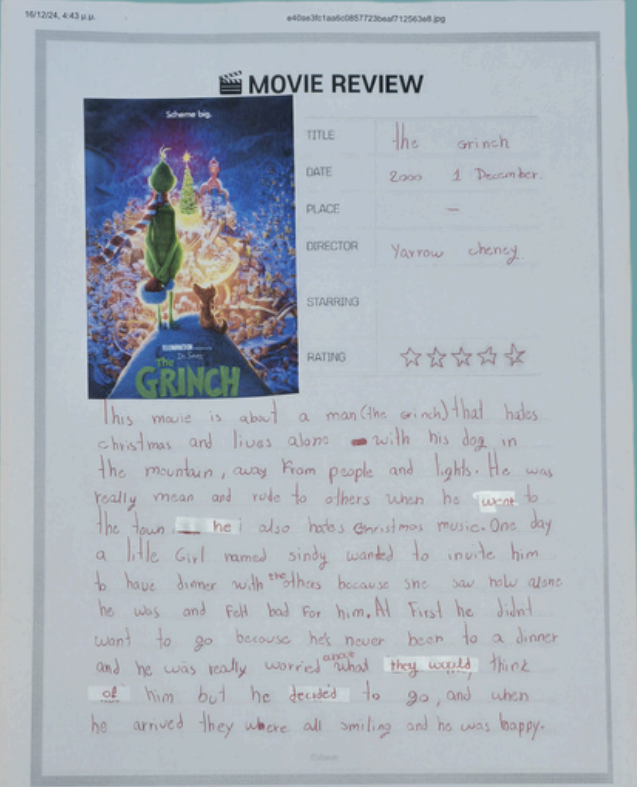 16/12/24, 4:43 μ.μ.
e40ae3fc1aa6c0857723beaf712563e8.jpg
MOVIE REVIEW
Scheme big.
TITLE the Grinch
DATE 2000 1 December.
PLACE —
DIRECTOR Yarrow cheney.
STARRING
RATING
ILLUMINATION
Dr. Seuss'
The
GRINCH
This movie is about a man (the Grinch) that hates
christmas and lives alone with his dog in
the mountain, away from people and lights. He was
really mean and rude to others when he went to
the town he also hates Christmas music. One day
a little Girl named sindy wanted to invite him
to have dinner with the others because she saw how alone
he was and felt bad for him. At First he didn't
want to go because he's never been to a dinner
and he was really worried about what they would think
of him but he decided to go, and when
he arrived they where all smiling and he was happy.